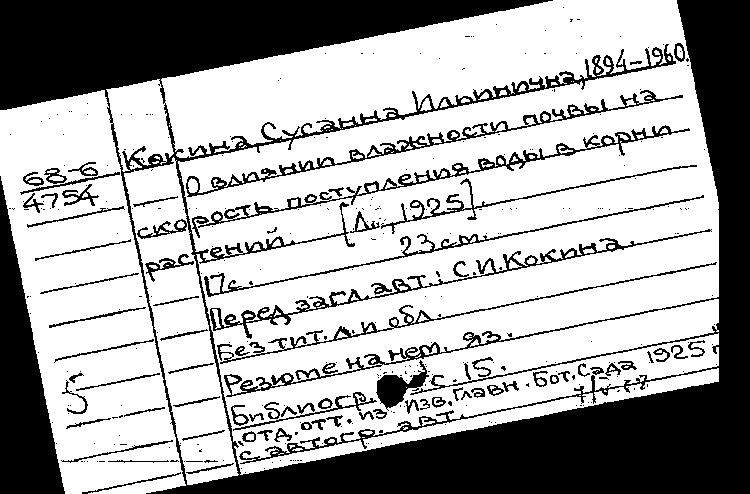 Кокина, Сусанна Ильинична, 1894-1960.
68-6
4754
О влиянии влажности почвы на
скорость поступления воды в корни
растений. [Л., 1925].
17с. 23см.
Перед загл. авт.: С.И.Кокина.
Без тит. л. и обл.
Резюме на нем. яз.
5
Библиогр. с. 15.
"Отд. отт. из Изв. Главн. Бот. Сада 1925 г"
с автогр. авт.